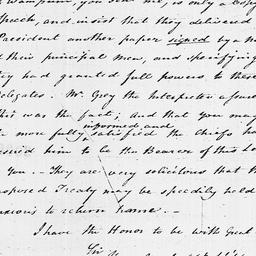 you sent me, is only a Copy
Speech, and insist that they delivered
President another paper signed by a
their principal men, and specifying
they had granted full powers to these
Delegates. Mr. Grey the Interpreter assures
this was the fact, And that you may
informed and
more fully satisfied the Chiefs ha
him to be the Bearer of this Le
You -- They are very solicitous that th
proposed Treaty may be speedily held
anxious to return home. --
I have the Honor to be with Great
Sir